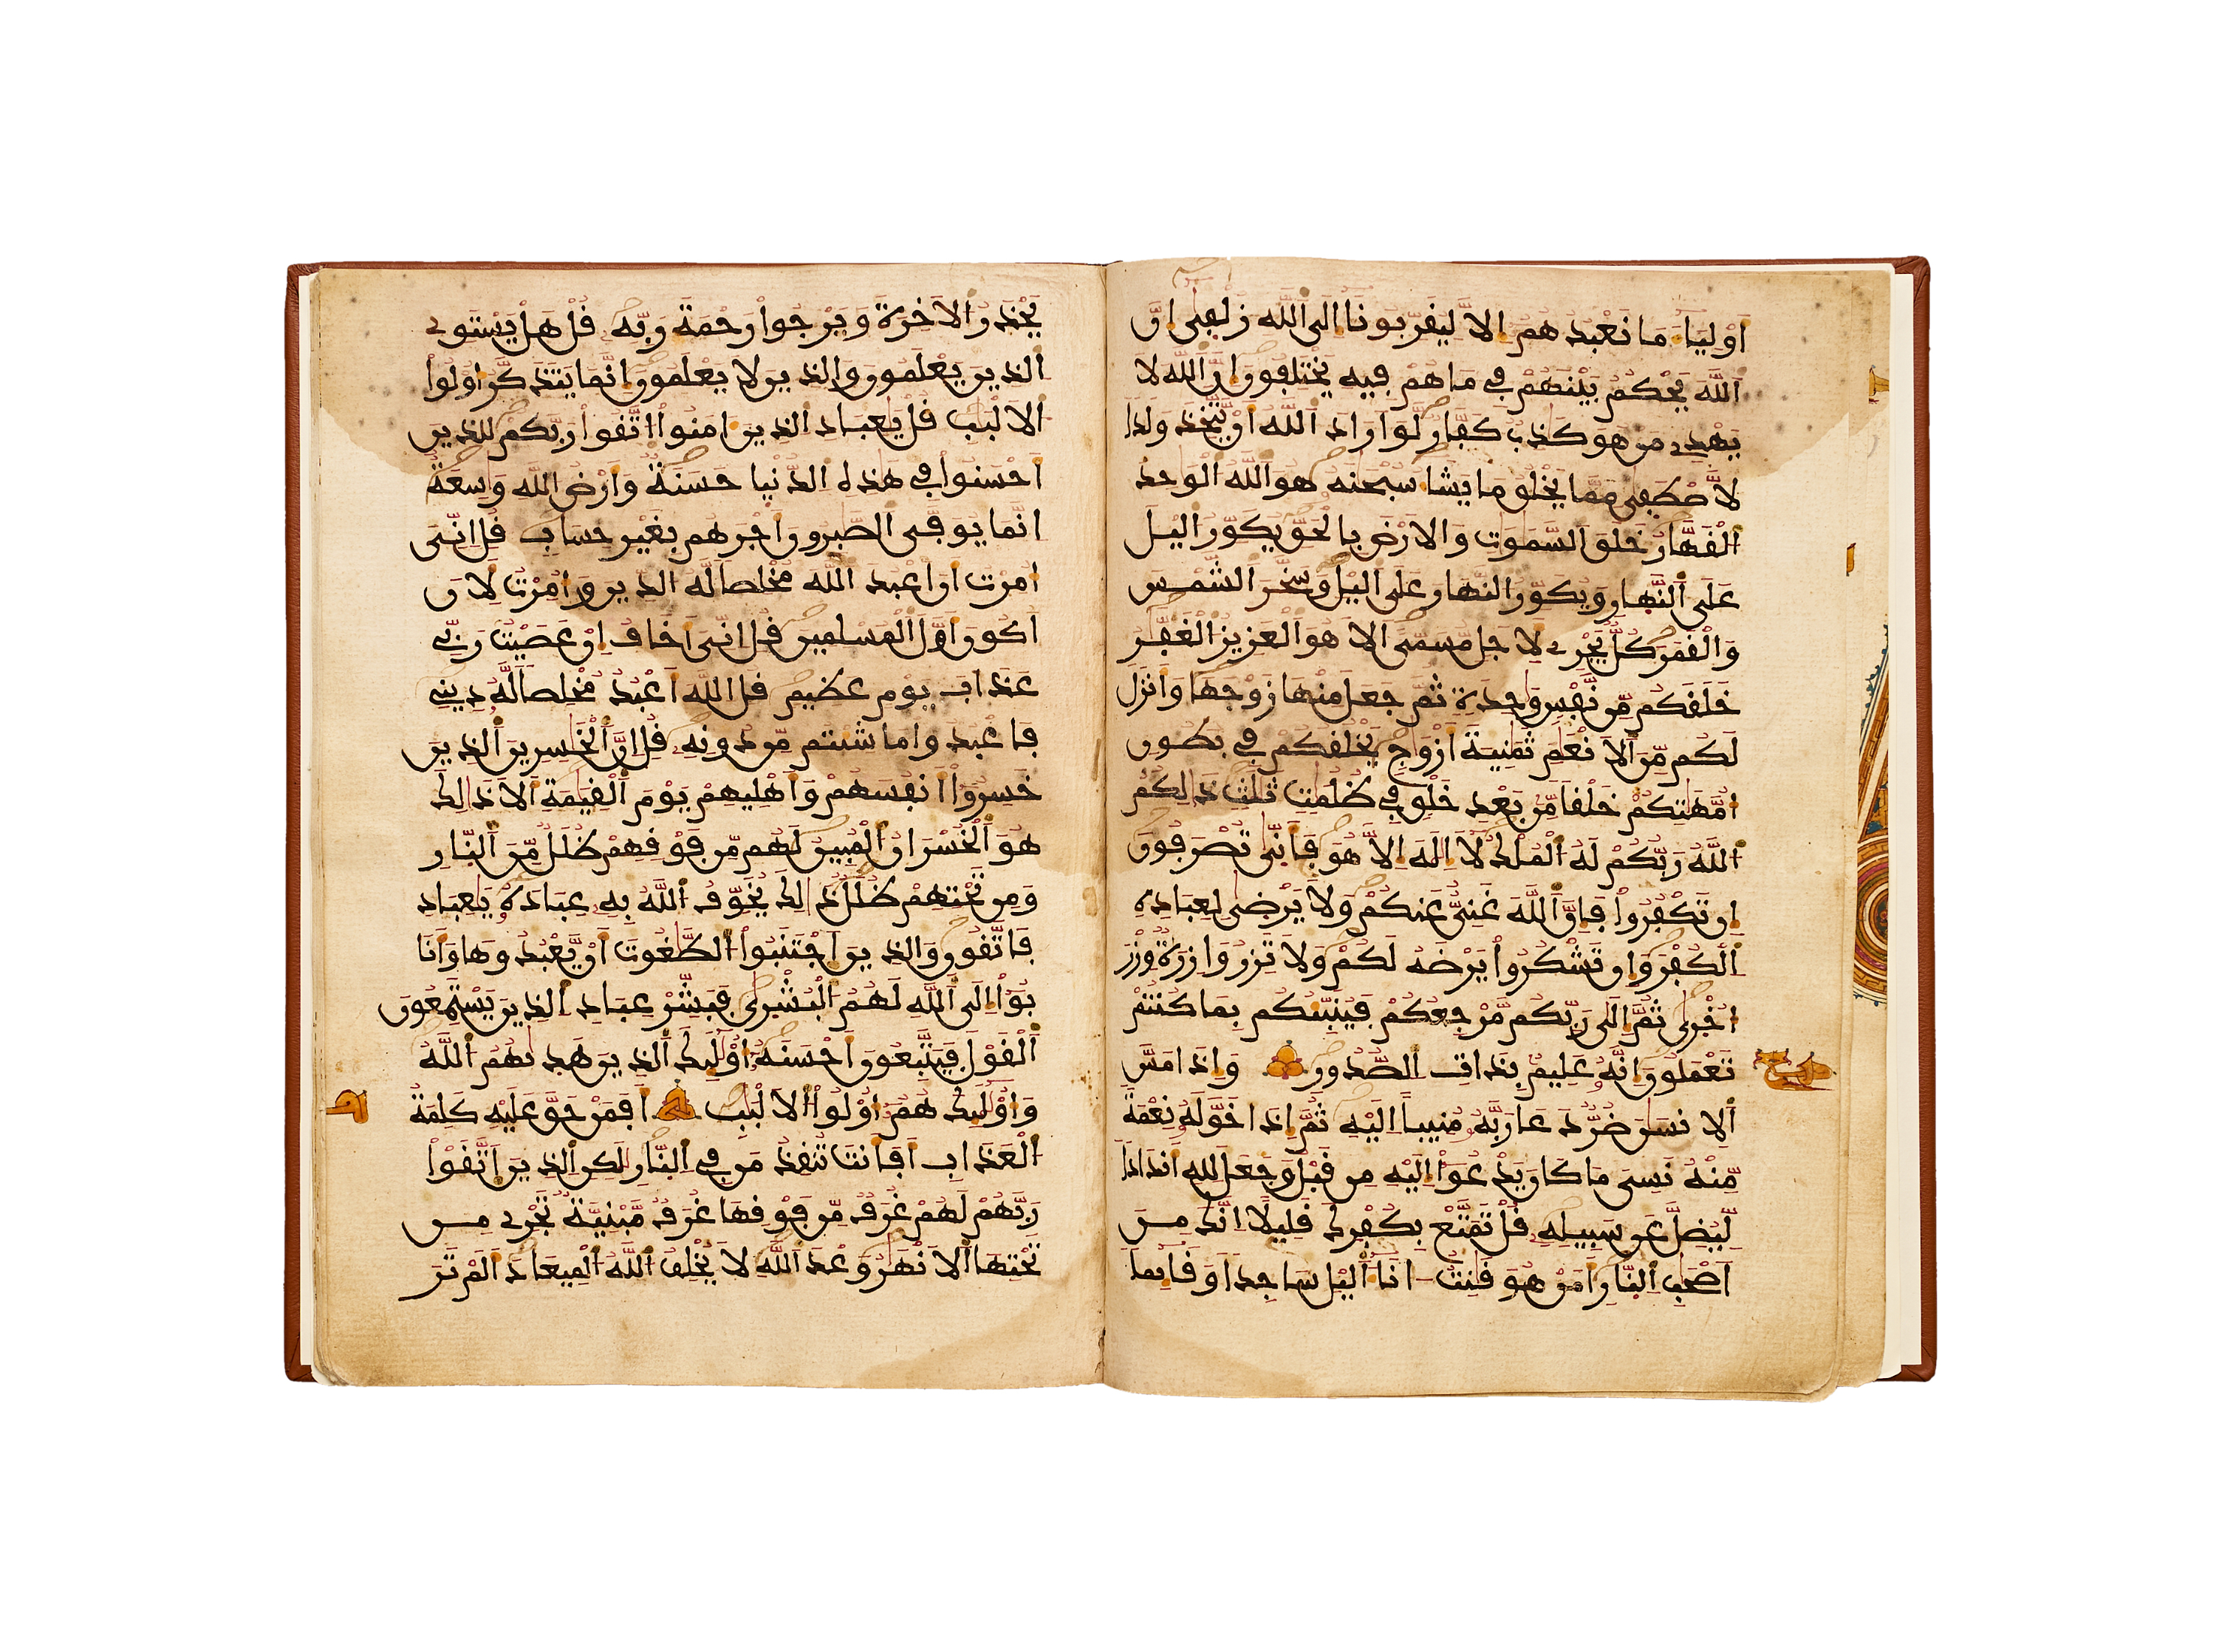 أوليا ما نعبدهم الا ليقربونا الى الله زلفى ان
الله يحكم بينهم في ما هم فيه يختلفون ان الله لا
يهدي من هو كذب كفار لو اراد الله ان يتخذ ولدا
لاصطفى مما يخلق ما يشا سبحنه هو الله الوحد
القهار خلق السموت والارض بالحق يكور اليل
على النهار ويكور النهار على اليل وسخر الشمس
والقمر كل يجري لاجل مسمى الا هو العزيز الغفر
خلقكم من نفس وحدة ثم جعل منها زوجها وانزل
لكم من الانعم ثمنية ازوج يخلقكم في بطون
امهتكم خلقا من بعد خلق في ظلمت ثلث ذلكم
الله ربكم له الملك لا اله الا هو فانى تصرفون
ان تكفروا فان الله غني عنكم ولا يرضى لعباده
الكفر وان تشكروا يرضه لكم ولا تزر وازرة وزر
اخرى ثم الى ربكم مرجعكم فينبئكم بما كنتم
تعملون انه عليم بذات الصدور واذا مس
الانسن ضر دعا ربه منيبا اليه ثم اذا خوله نعمة
منه نسي ما كان يدعوا اليه من قبل وجعل لله اندادا
ليضل عن سبيله قل تمتع بكفرك قليلا انك من
اصحب النار امن هو قنت انا اليل ساجدا وقايما
يحذر الاخرة ويرجوا رحمة ربه قل هل يستوي
الذين يعلمون والذين لا يعلمون انما يتذكر اولوا
الالبب قل يعباد الذين امنوا اتقوا ربكم للذين
احسنوا في هذه الدنيا حسنة وارض الله وسعة
انما يوفى الصبرون اجرهم بغير حساب قل اني
امرت ان اعبد الله مخلصا له الدين وامرت لان
اكون اول المسلمين قل اني اخاف ان عصيت ربي
عذاب يوم عظيم قل الله اعبد مخلصا له ديني
فاعبدوا ما شئتم من دونه قل ان الخسرين الذين
خسروا انفسهم واهليهم يوم القيمة الا ذلك
هو الخسران المبين لهم من فوقهم ظلل من النار
ومن تحتهم ظلل ذلك يخوف الله به عباده يعباد
فاتقون والذين اجتنبوا الطغوت ان يعبدوها وانا
بوا الى الله لهم البشرى فبشر عباد الذين يستمعون
القول فيتبعون احسنه اولئك الذين هديهم الله
واولئك هم اولوا الالبب افمن حق عليه كلمة
العذاب افانت تنقذ من في النار لكن الذين اتقوا
ربهم لهم غرف من فوقها غرف مبنية تجري من
تحتها الانهر وعد الله لا يخلف الله الميعاد الم تر